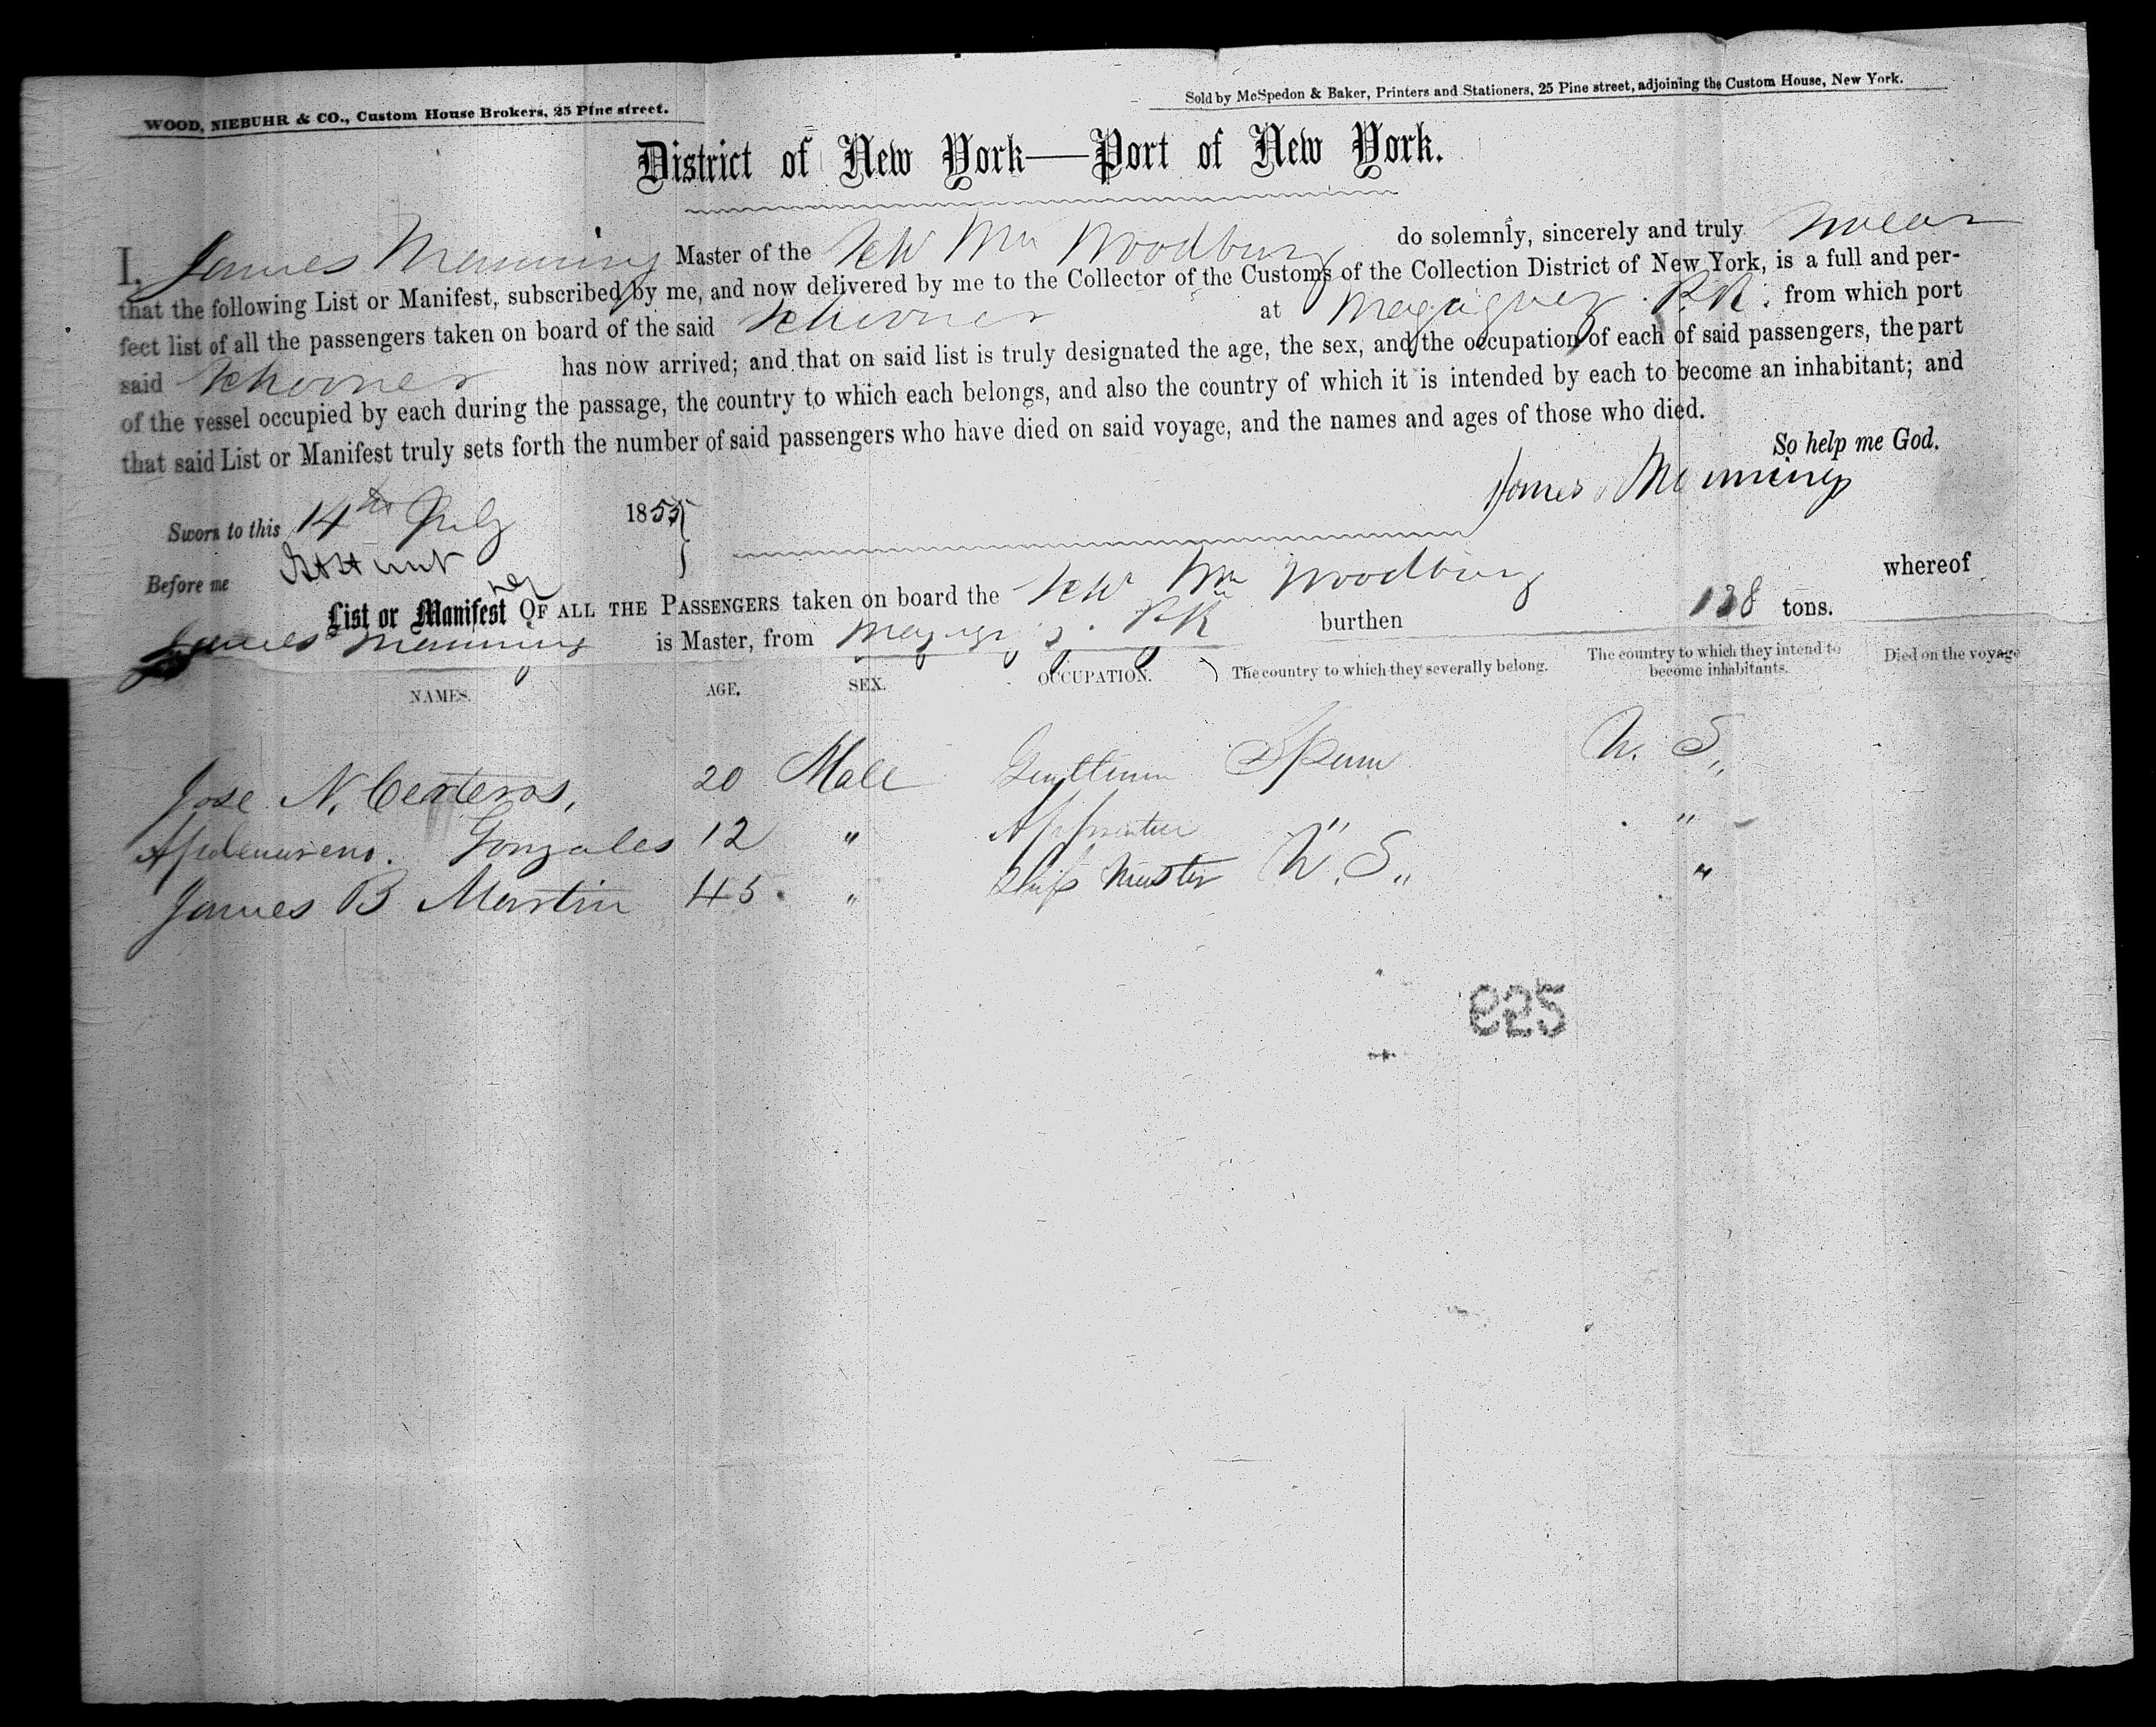 WOOD, NIEBUHR & CO., Custom House Brokers, 25 Pine street.
Sold by McSpedon & Baker, Printers and Stationers, 25 Pine street, adjoining the Custom House, New York.
District of New York—Port of New York.
I, James Manning Master of the Schr Wm Woodbury do solemnly, sincerely and truly swear
that the following List or Manifest, subscribed by me, and now delivered by me to the Collector of the Customs of the Collection District of New York, is a full and per-
fect list of all the passengers taken on board of the said Schooner at Mayaguez. P.R. from which port
said Schooner has now arrived; and that on said list is truly designated the age, the sex, and the occupation of each of said passengers, the part
of the vessel occupied by each during the passage, the country to which each belongs, and also the country of which it is intended by each to become an inhabitant; and
that said List or Manifest truly sets forth the number of said passengers who have died on said voyage, and the names and ages of those who died.
So help me God.
James Manning
Sworn to this 14th July 1855
Before me
List or Manifest OF ALL THE PASSENGERS taken on board the Schr Wm Woodbury whereof
James Manning is Master, from Mayaguez. P.R burthen 128 tons.
NAMES. AGE. SEX. OCCUPATION. The country to which they severally belong. The country to which they intend to become inhabitants. Died on the voyage
Jose N. 20 Male Gentleman Spain U. S,,
Gonzales 12 " Apprentice " "
James B Martin 45 " Ship Master U. S,, "
925